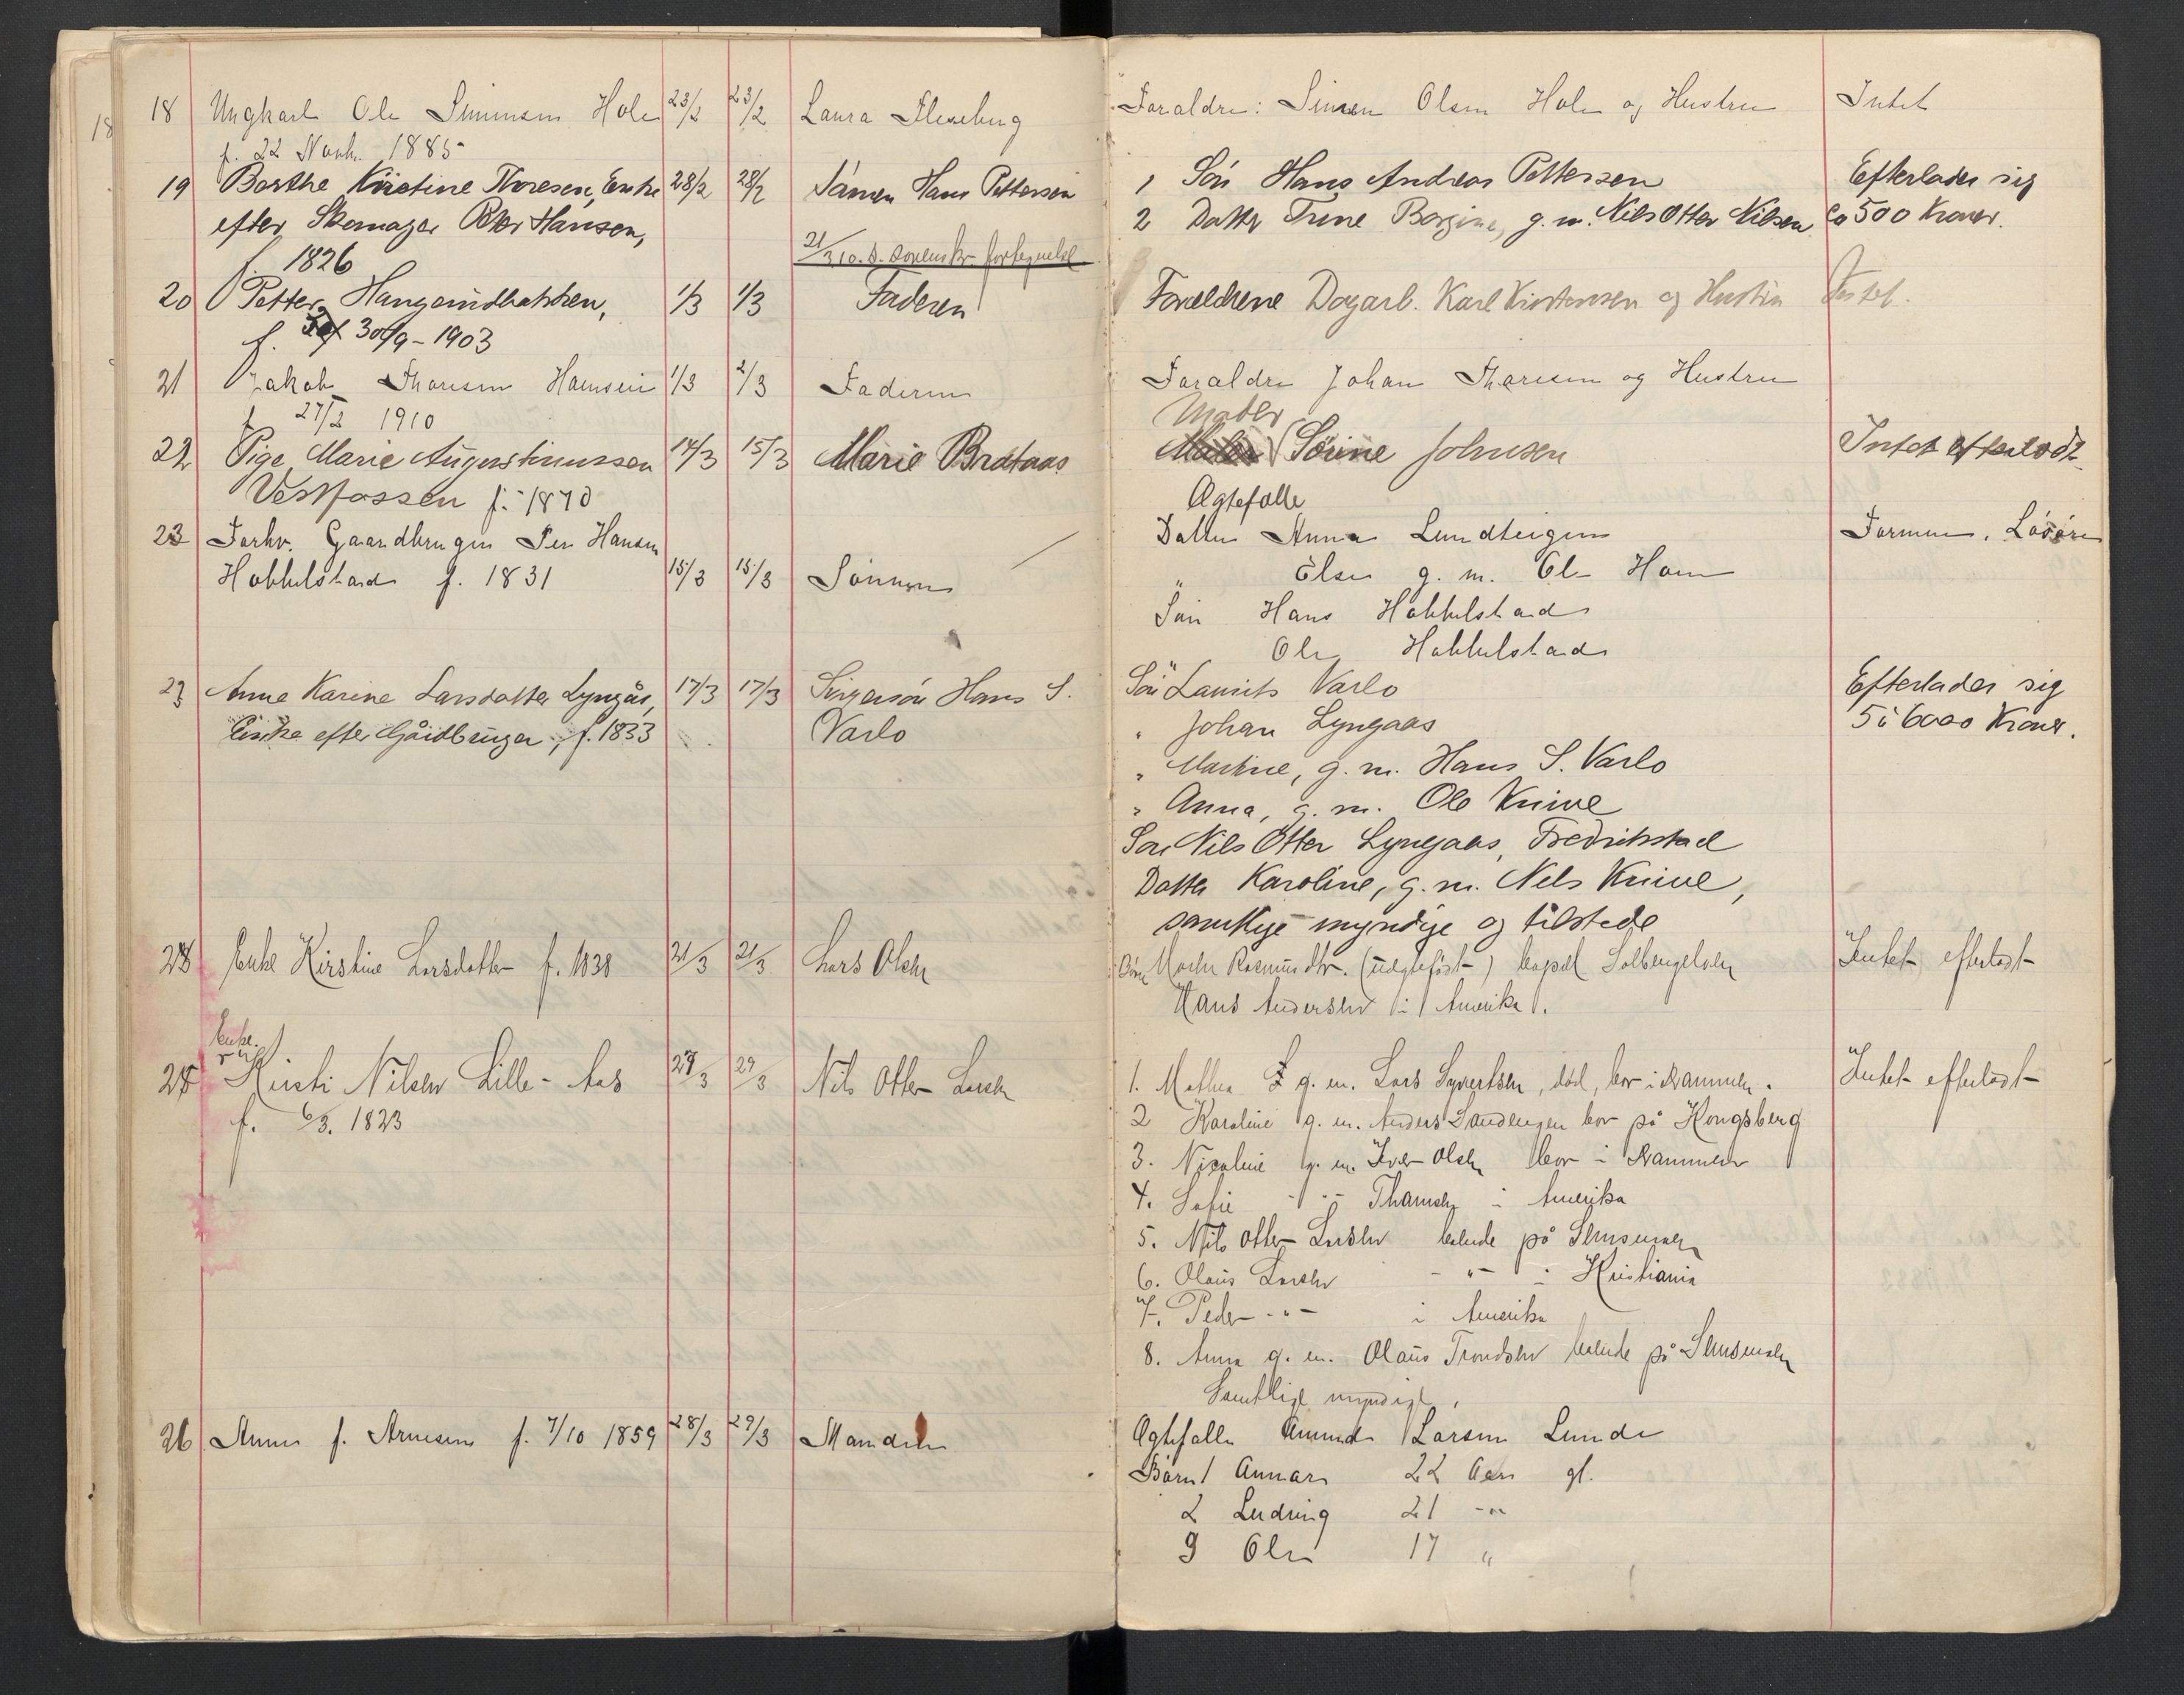 18 Ungkarl Ole Simensen Hole 23/2 23/2 Laura Flesberg Foraldre: Simen Olsen Hole og Hustru Intet
f. 22 Novb. 1885
19 Berthe Kirstine Thoresen, Enke 28/2 28/2 Sønnen Hans Pettersen 1 Søn Hans Andreas Pettersen Efterlader sig
efter Skomager Peter Hansen, 2 Datter Trine Bergine, g. m. Nils Otter Nilsen Ca 500 Kroner.
f. 1826 21/3 10. fortegnelse
20 Petter Haugsundbakken, 1/3 1/3 Faderen Forældrene Dagarb. Karl Kristensen og Hustru Intet.
f. 30/9 - 1903
21 Jakob Thoresen Hamsen 1/3 2/3 Faderen Foraldre Johan Thoresen og Hustru
f 27/2 1910
Moder
22 Pige Marie Augustinussen 14/3 15/3 Marie Brataas Sørine Johnsen Intet efterladt
Vestfossen f. 1870
Ægtefolle
23 Forhv. Gaardbruger Per Hansen Datter Anna Lundteigen Formue. Løsøre
Hobbelstad f. 1831 15/3 15/3 Sønnen " Else g. m. Ole Hom
Søn Hans Hobbelstad
" Ole Hobbelstad
23 Anne Karine Larsdatter Lyngås, 17/3 17/3 Svigersøn Hans S. Søn Laurits Varlo Efterlader sig
Enke efter Gårdbruger, f. 1833 Varlo " Johan Lyngaas 5 à 6000 Kroner.
" Martine, g. m. Hans S. Varlo
" Anna, g. m. Ole Knive
Søn Nils Otter Lyngaas, Fredrikstad
Datter Karoline, g. m. Nels Knive,
samtlige myndige og tilstede
24 Enke Kirstine Larsdatter f. 1838 21/3 21/3 Lars Olsen Børn Maren Rasmusdtr. Intet efterladt
Hans Andersen i Amerika.
Enke
25 Kirsti Nilsen Lille-Aas 27/3 29/3 Nils Otter Larsen 1. Mathea g. m. Lars Syvertsen, død, bor i Drammen. Intet efterladt
f. 6/3. 1823 2 Karoline g. m. Anders Sandengen bor på Kongsberg
3. Nicoline g. m. Iver Olsen bor i Drammen
4. Sofie - " - Thamsen i Amerika
5. Nils Otter Larsen boende på
6. Olaus Larsen - " - i Kristiania
7. Peder - " - i Amerika
8. Anna g. m. Olaus Trondsen boende på
Samtlige myndige.
26 Anna f. Arnesen f. 7/10 1859 28/3 29/3 Manden Ægtefolle Amund Larsen Lunde
Børn 1 Annar 22 Aar gl.
2 Ludvig 21 - "
3 Ole 17 "